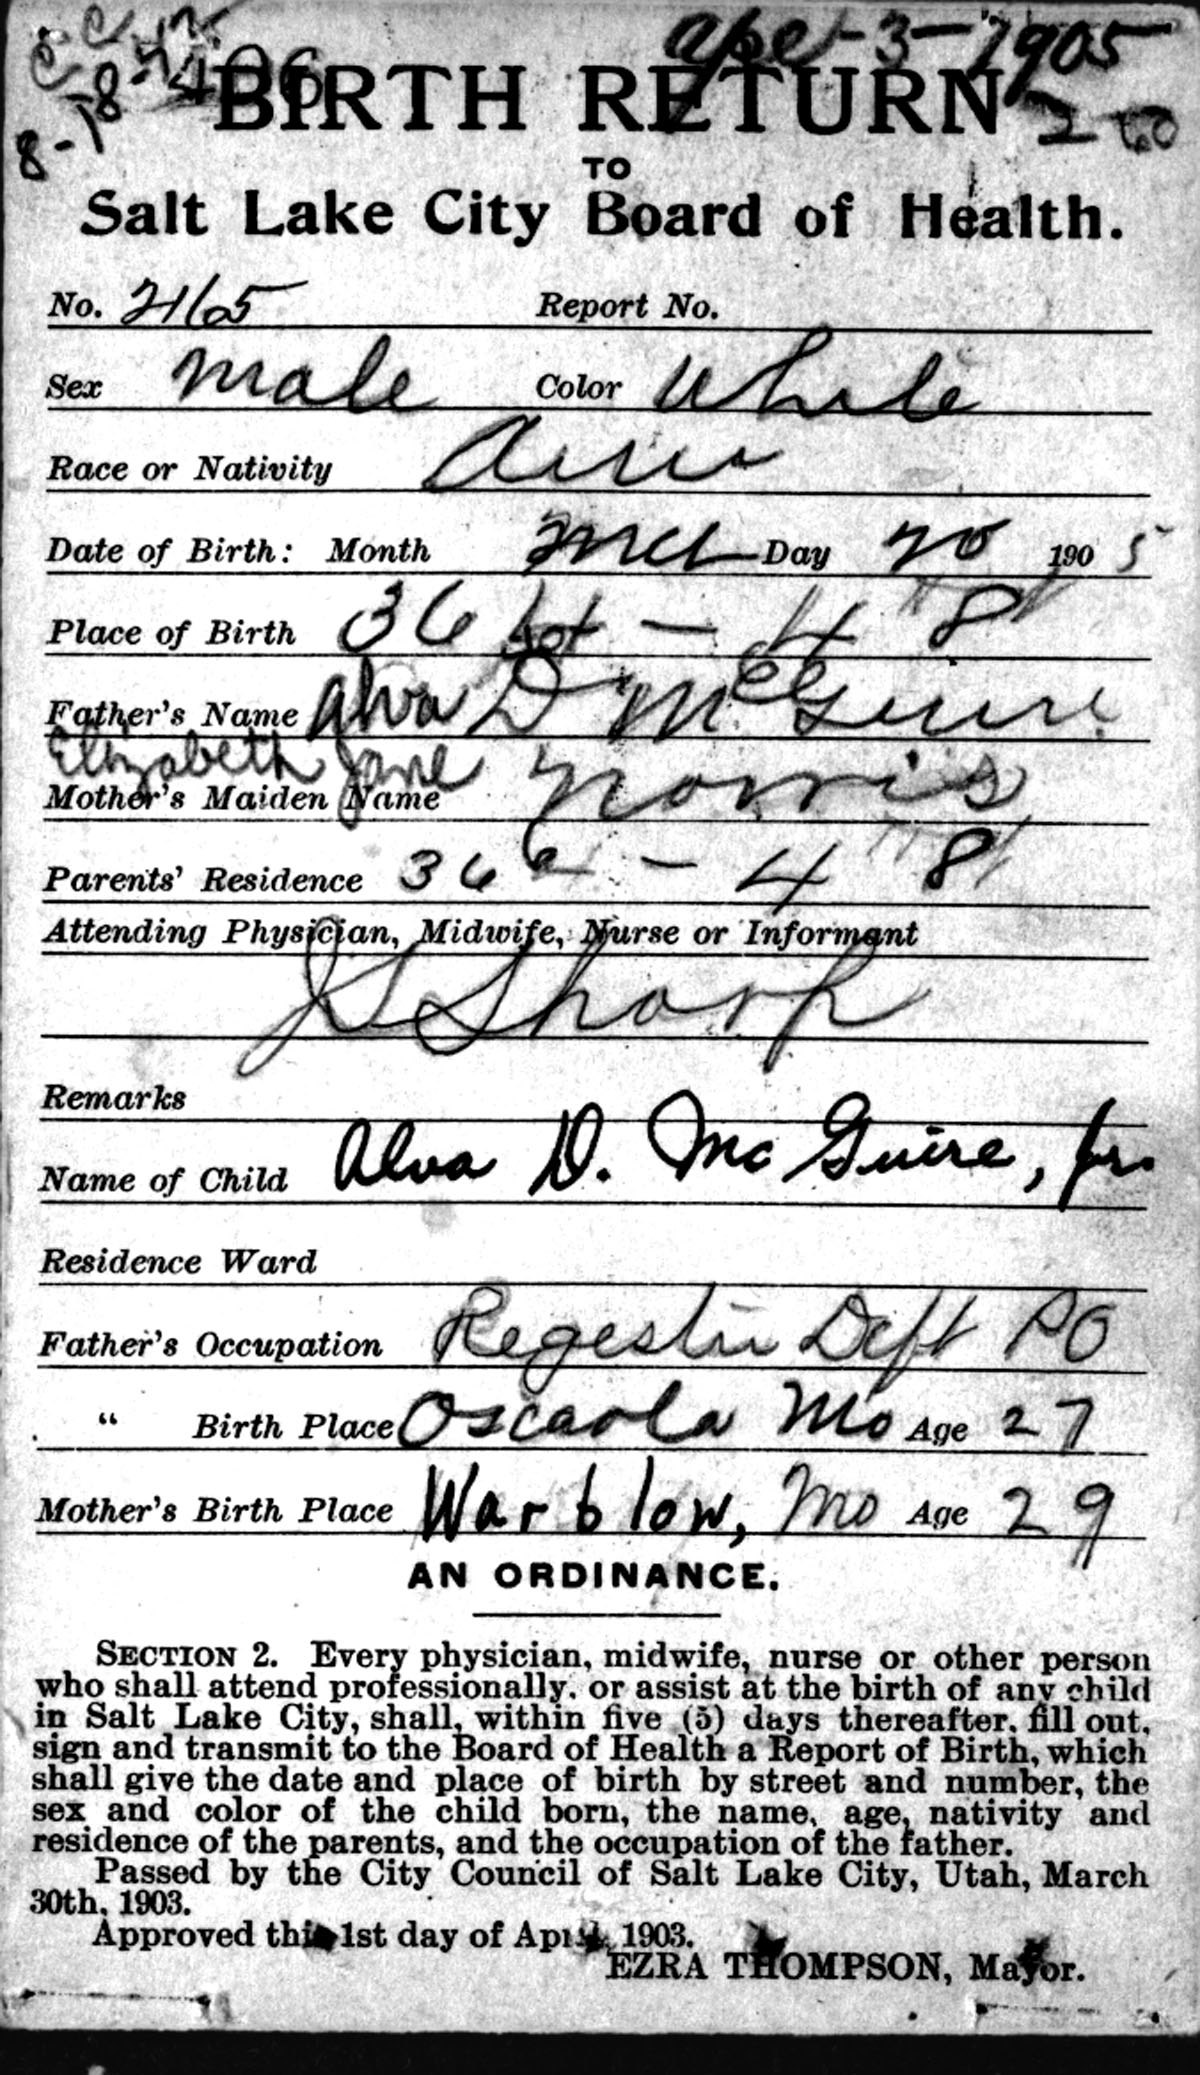 Apr-3-1905
BIRTH RETURN
TO
Salt Lake City Board of Health.
No. 2165 Report No.
Sex Male Color White
Race or Nativity Am
Date of Birth: Month Mch Day 20 1905
Place of Birth 36 - 4
Father's Name Alva D McGuire
Elizabeth Jane
Mother's Maiden Name Norris
Parents' Residence 36 - 4
Attending Physician, Midwife, Nurse or Informant
J S Sharp
Remarks
Name of Child Alva D. McGuire, Jr.
Residence Ward
Father's Occupation Register Dept PO
" Birth Place Oscaola Mo Age 27
Mother's Birth Place Warblow, Mo Age 29
AN ORDINANCE.
SECTION 2. Every physician, midwife, nurse or other person
who shall attend professionally, or assist at the birth of any child
in Salt Lake City, shall, within five (5) days thereafter, fill out,
sign and transmit to the Board of Health a Report of Birth, which
shall give the date and place of birth by street and number, the
sex and color of the child born, the name, age, nativity and
residence of the parents, and the occupation of the father.
Passed by the City Council of Salt Lake City, Utah, March
30th, 1903.
Approved this 1st day of April, 1903.
EZRA THOMPSON, Mayor.